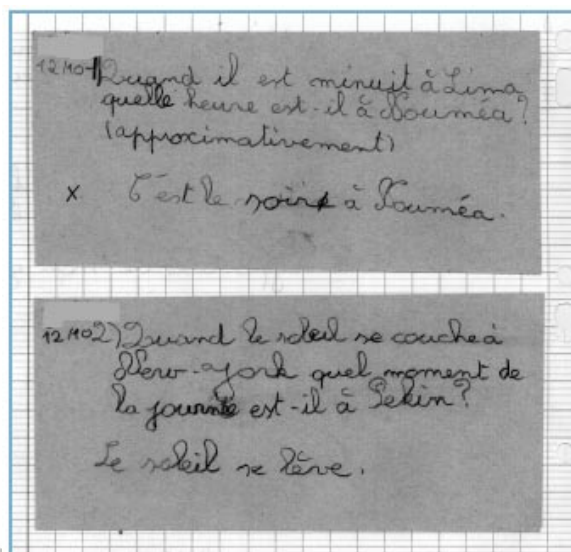 12/10 1) Quand il est minuit à Lima
quelle heure est-il à Nouméa?
(approximativement)
x C'est le soir à Nouméa.
12/10 2) Quand le soleil se couche à
New-york quel moment de
la journée est-il à Pekin?
Le soleil se lève.